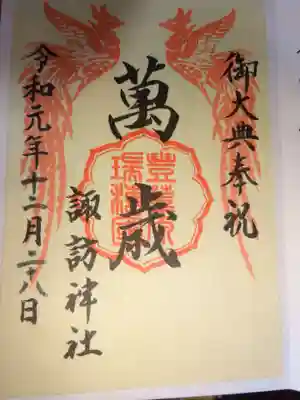 御大典奉祝
萬歳
諏訪神社
令和元年十二月二十八日